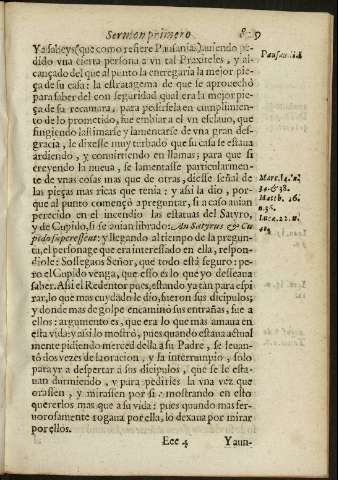 Sermon primero
Ya sabeys (que como refiere Pausanias) auiendo pe-
dido vna cierta persona a vn tal Praxiteles, y al-
cançado del que al punto la entregaria la mejor pie-
ça de su casa: la estratagema de que se aprouechó
para saber del con seguridad qual era la mejor pie-
ça de su recamara, para pedirsela en cumplimien-
to de lo prometido, fue embiar a el vn esclauo, que
fingiendo lastimarse y lamentarse de vna gran des-
gracia, le dixesse muy turbado que su casa se estaua
ardiendo, y conuirtiendo en llamas; para que si
creyendo la nueua, se lamentasse particularmen-
te de vnas cosas mas que de otras, diesse señal de
las pieças mas ricas que tenia: y assi la dio, por-
que al punto començó a preguntar, si a caso auian
perecido en el incendio las estatuas del Satyro,
y de Cupido, si se auian librado: An Satyrus & Cu-
pido superessent: y llegando al tiempo de la pregun-
ta, el personage que era interessado en ella, respon-
diole: Sossegaos Señor, que todo está seguro: pe-
ro el Cupido venga, que esso es lo que yo desseaua
saber. Assi el Redentor pues, estando ya tan para espi
rar, lo que mas cuydado le dio, fueron sus dicipulos;
y donde mas de golpe encaminó sus entrañas, fue a
ellos: argumento es, que era lo que mas amaua en
esta vida: y assi lo mostró, pues quando estaua actual
mente pidiendo merced della a su Padre, se leuan-
tó dos vezes de la oracion, y la interrumpio, solo
para yr a despertar a sus dicipulos, que se le esta-
uan durmiendo, y para pedirles la vna vez que
orassen, y mirassen por si: mostrando en esto
quererlos mas que a su vida: pues quando mas fer-
uorosamente rogaua por ella, lo dexaua por mirar
por ellos.
Eee 4 Yaun-
Pausanias
Marc. 14. n.
34. & 38.
Matth. 26.
n. 36.
Luca. 22. n.